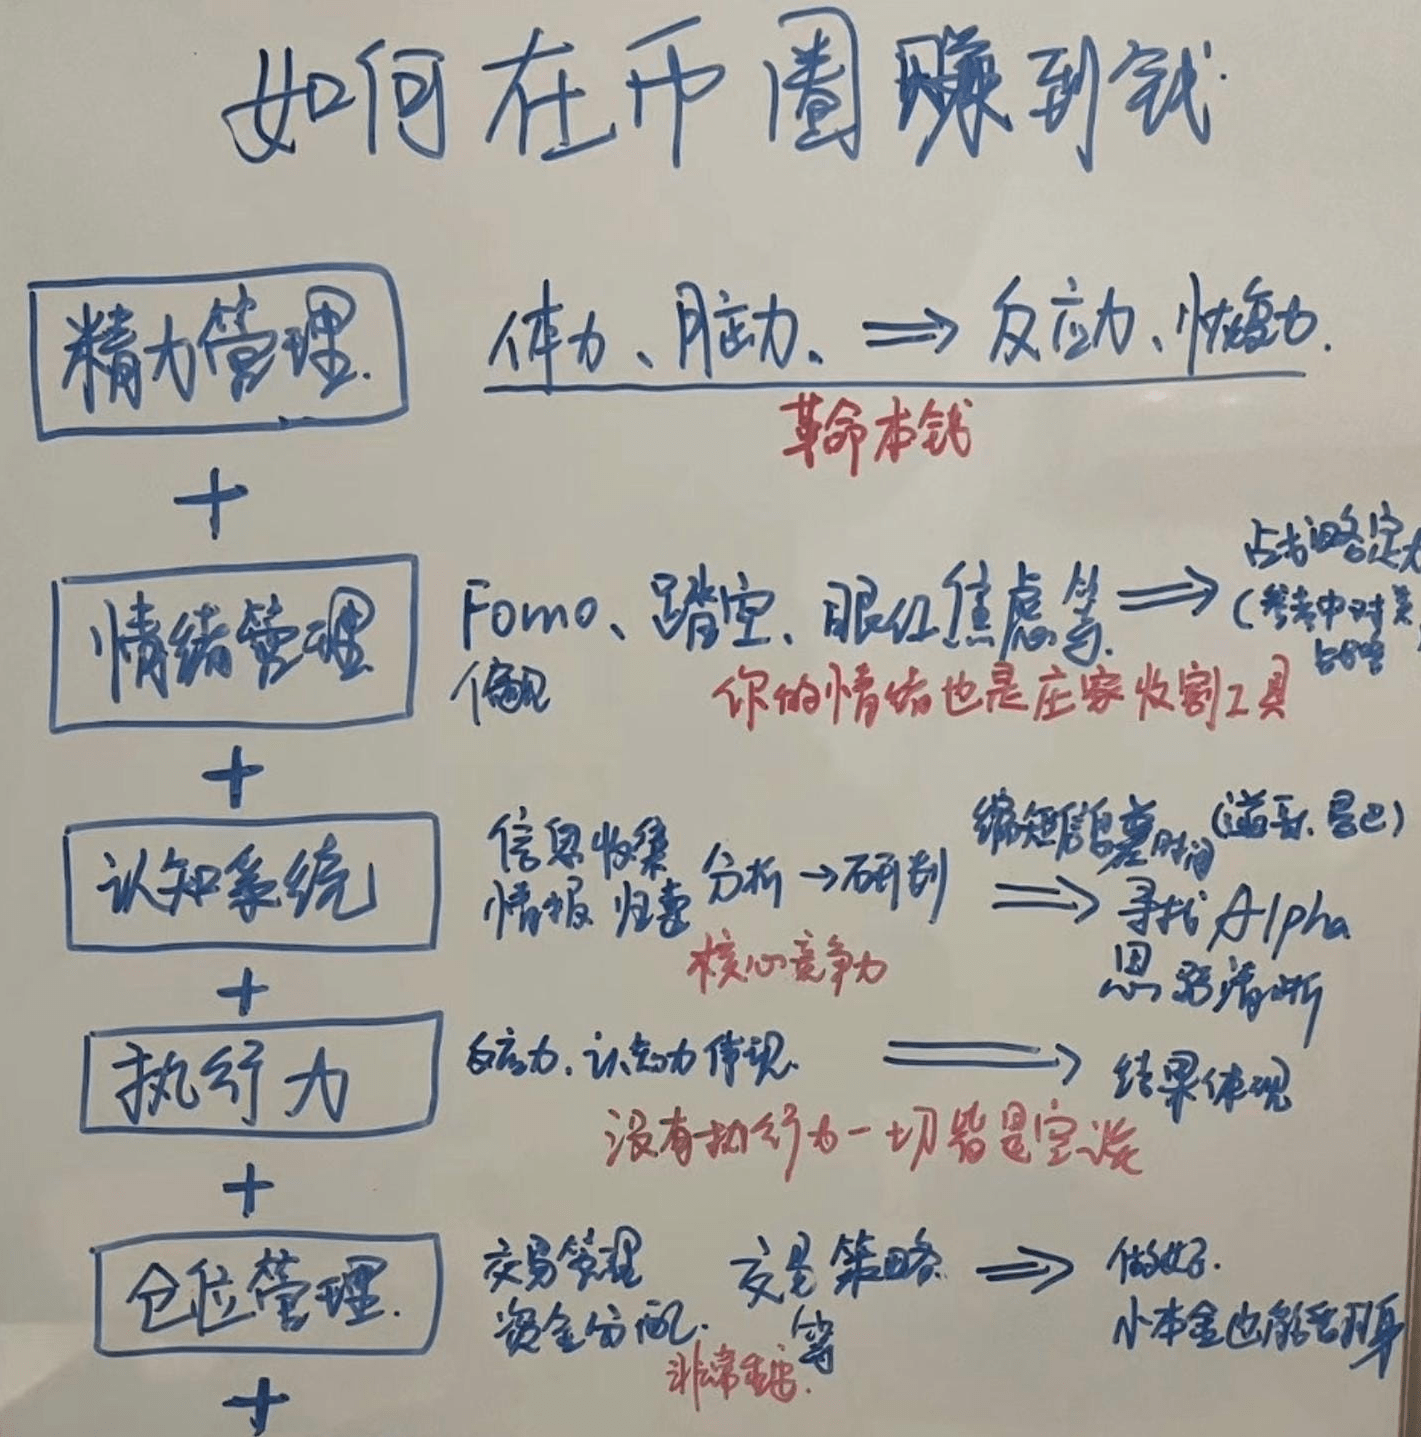 如何在币圈赚到钱
精力管理.
体力、脑力、⟹ 反应力、恢复力.
革命本钱
+
情绪管理
Fomo、踏空、眼红焦虑等 ⟹ 战略定力
偏见
(参考中对美
战略
你的情绪也是庄家收割工具
+
认知系统
信息收集
情报 归类
分析 → 研判
⟹
缩短信息差时间
寻找 Alpha
思路清晰
核心竞争力
+
执行力
反应力、认知力体现. ⟹ 结果体现
没有执行力一切皆是空谈
+
仓位管理.
交易管理
资金分配.
交易策略
等
⟹
做好.
小本金也能翻身
非常重要.
+